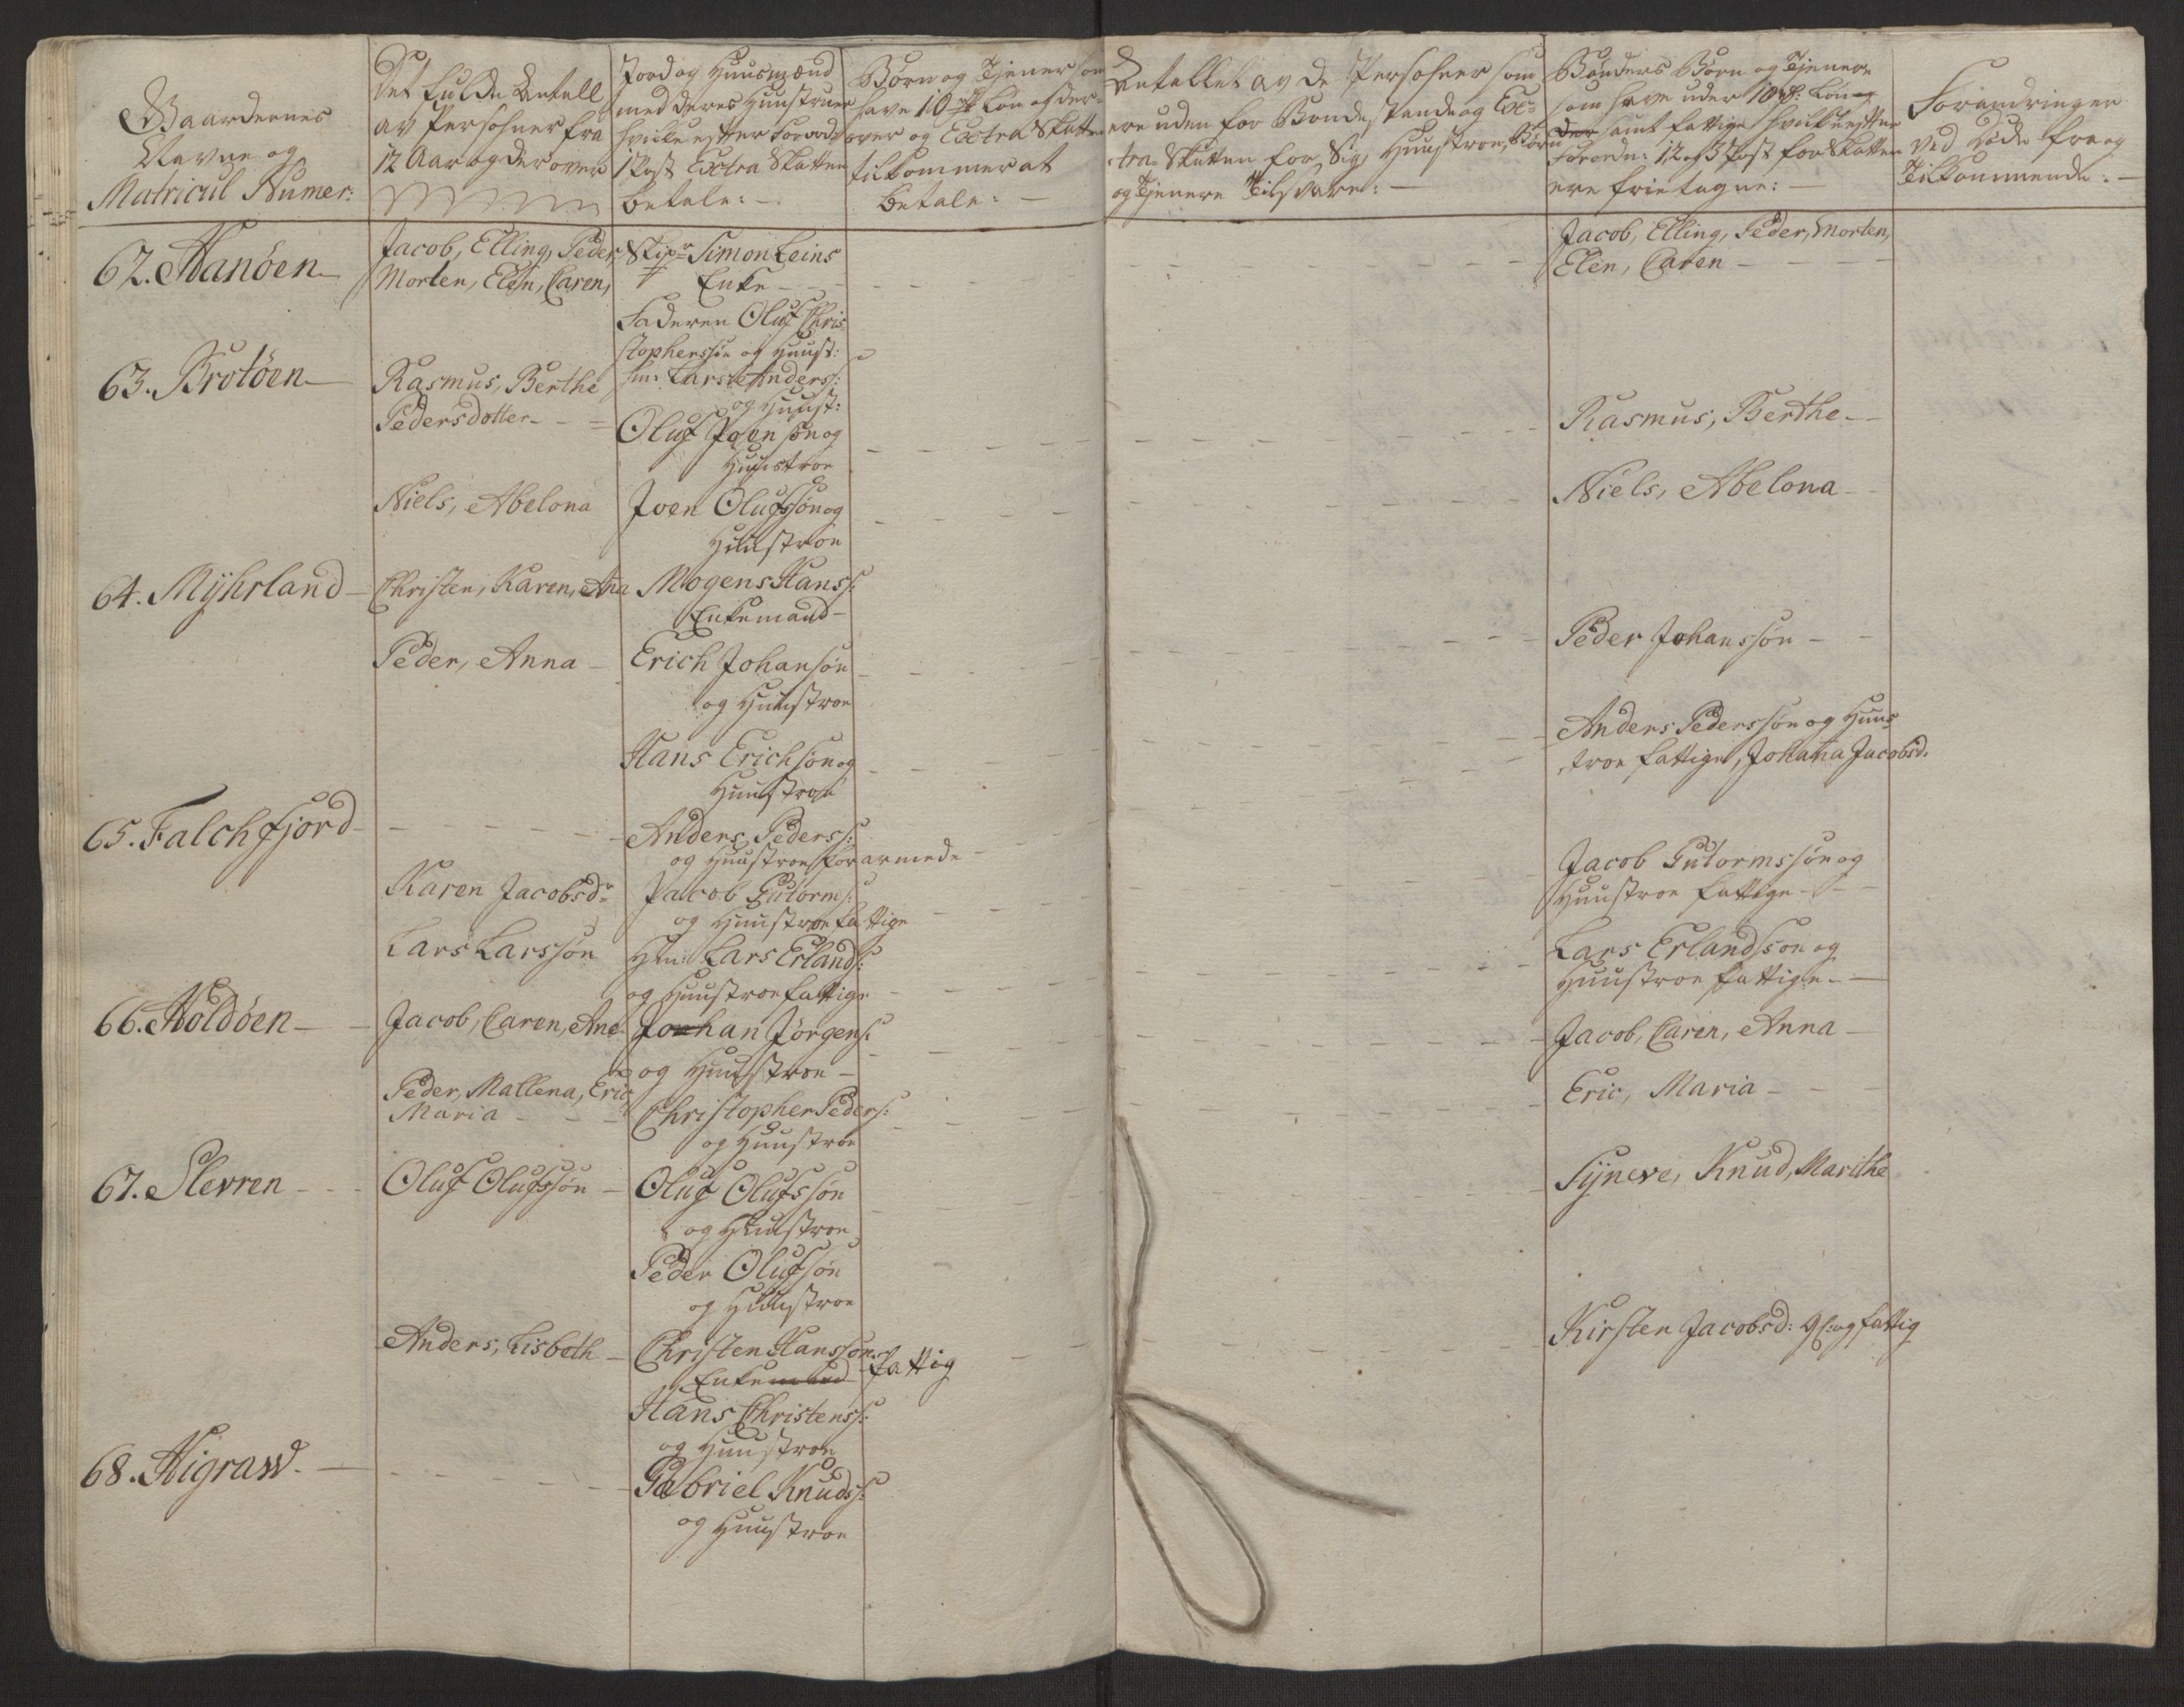 Gaardernes
Navne og
Matricul Numer:
Det fulde Antall
av Persohner fra
12 Aar og derover
Jord og Huusmænd
med deres Huustruer
hvilke efter Forord:
1 Post Extra Skatten
betale: -
Børn og Tjenere som
have 10 rd Løn og der-
over og Extra Skatten
tilkommer at
betale: -
Antallet av de Persohner som
ere uden for Bondestande og Ex-
tra-Skatten for Sig, Huustroe, Børn
og Tjenere Tilsvare: -
Bønders Børn og Tjenere
som have under 10 rd: Løn og
der samt fattige hvilke efter
Forordn: 12 og 3 Post for Skatten
ere frietagne: -
Forandringer
ved Døde fra og
Tilkommende: -
62. Hanöen
Jacob, Elling, Peder,
Morten, Elen, Caren,
Skipr Simon Leins
Enke
Jacob, Elling, Peder, Morten,
Elen, Caren
63. Brotöen
Rasmus, Berthe
Pedersdotter
Faderen Oluf Chris-
tophersøn og Huust:
Hm: Lars Anders:
og Huust:
Oluf Joensøn og
Huustroe
Rasmus, Berthe
Niels, Abelona
Joen Olufssøn og
Huustroe
Niels, Abelona
64. Mÿhrland
Christen, Karen, Ana
Mogens Hanss:
Enkemand
Peder, Anna
Erich Johansøn
og Huustroe
Peder Johanssøn
Hans Erichsøn og
Huustroe
Anders Pederssøn og Huus
troe fattige, Johana Jacobsd.
65. Falchfjord
Anders Pederss:
og Huustroe forarmede
Karen Jacobsdr
Jacob Gutorms:
og Huustroe fattige
Jacob Gutormssøn og
Huustroe fattige
Lars Larssøn
Hm: Lars Erlands:
og Huustroe fattige
Lars Erlandsøn og
Huustroe fattige
66. Holdöen
Jacob, Caren, Ane
Johan Jörgens:
og Huustroe
Jacob, Caren, Anna
Peder, Mallena, Eric,
Maria
Christopher Peders:
og Huustroe
Eric, Maria
67. Slevren
Oluf Olufssøn
Oluf Olufssøn
og Huustroe
Sÿneve, Knud, Marithe
Peder Olufsøn
og Huustroe
Anders, Lisbeth
Christen Hanssøns
Enkemand fattig
Kirsten Jacobsd: gl: og fattig
Hans Christenss:
og Huustroe
68. Higraw
Gabriel Knuds:
og Huustroe